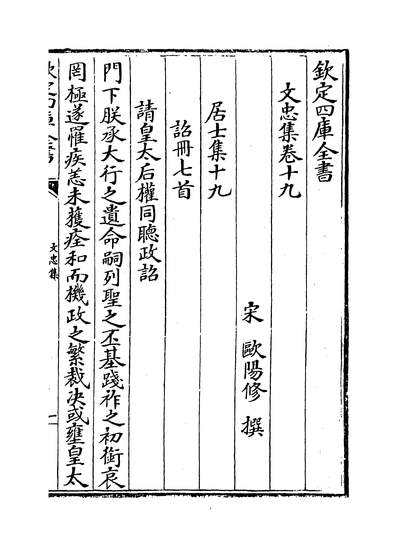 欽定四庫全書
文忠集卷十九
宋 歐陽修 撰
居士集十九
詔冊七首
請皇太后權同聽政詔
門下朕承大行之遺命嗣列聖之丕基踐祚之初銜哀
罔極遂罹疾恙未獲痊和而機政之繁裁决或壅皇太
文忠集
一